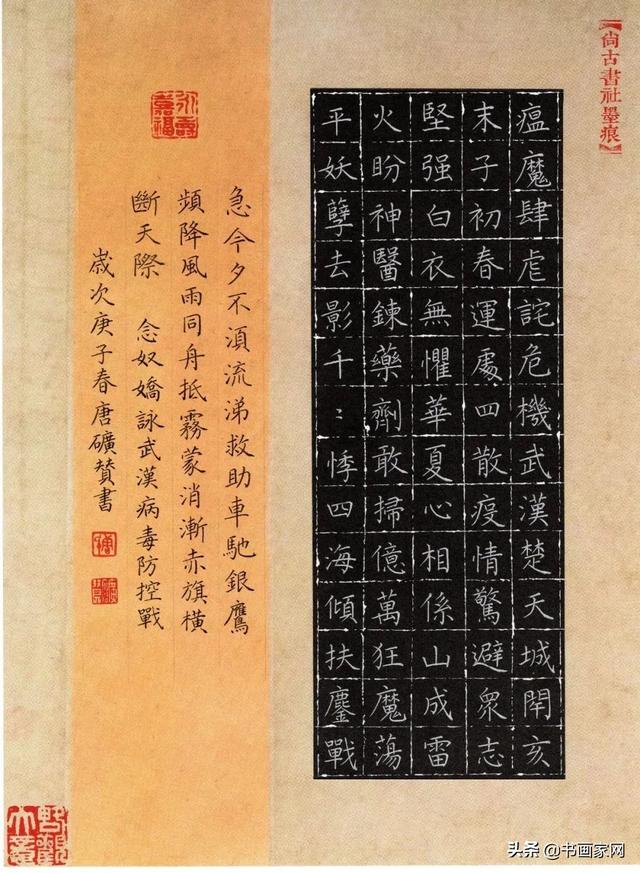 【尚古書社墨痕】
瘟魔肆虐詫危機武漢楚天城閇亥
末子初春運處四散疫情驚避眾志
堅强白衣無懼華夏心相係山成雷
火盼神醫鍊藥劑敢掃億萬狂魔蕩
平妖孽去影千〻悸四海傾扶鏖戰
永壽嘉福
急今夕不湏流涕救助車馳銀鷹
頻降風雨同舟抵霧蒙消漸赤旗橫
斷天際 念奴嬌詠武漢病毒防控戰
歲次庚子春唐礦贊書
头条 @书画家网